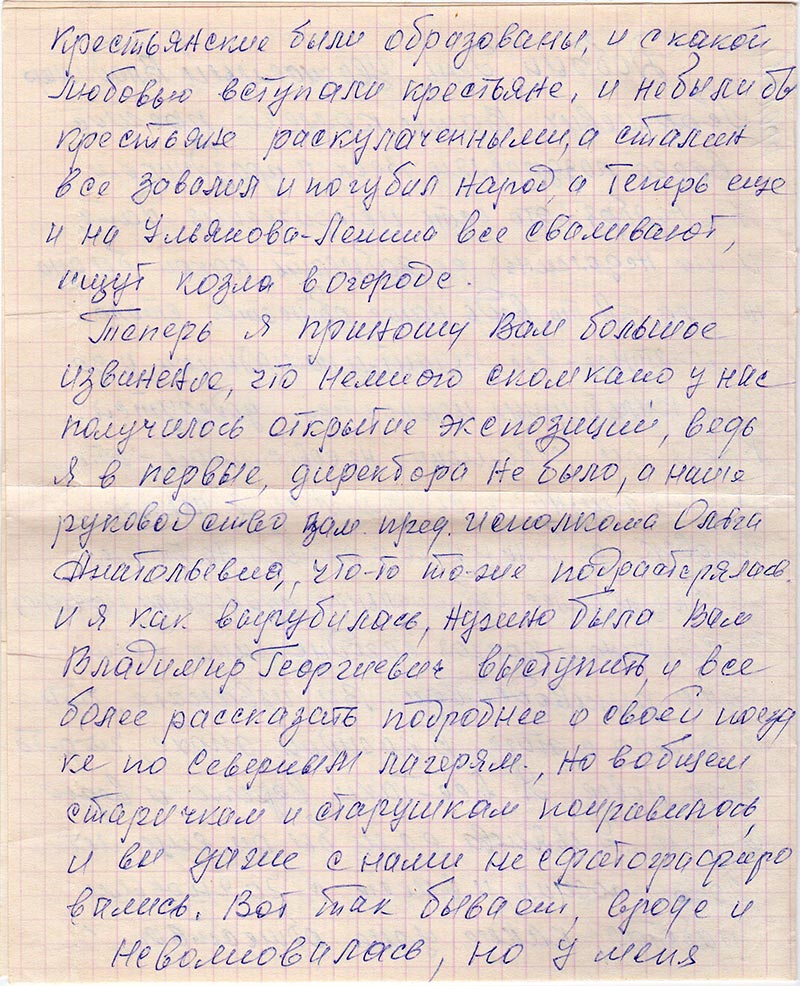 крестьянские были образованы, и с какой
любовью вступали крестьяне, и небыли бы
крестьяне раскулаченными, а сталин
все завалил и погубил народ, а теперь еще
и на Ульянова-Ленина все сваливают,
ищут козла в огороде.
Теперь я приношу Вам большое
извинение, что немного скомкано у нас
получилось открытие экспозиции, ведь
я в первые, директора не было, а наше
руководство зам. пред. исполкома Ольга
Анатольевна, что-то то-же подрастерялась.
и я как вырубилась, нужно была Вам
Владимир Георгиевич выступить, и все
более рассказать подробнее о своей поезд
ке по Северным лагерям., но вобщем
старичкам и старушкам понравилось,
и вы даже с нами не сфотографиро
вались. Вот так бывает, вроде и
неволновалась, но у меня